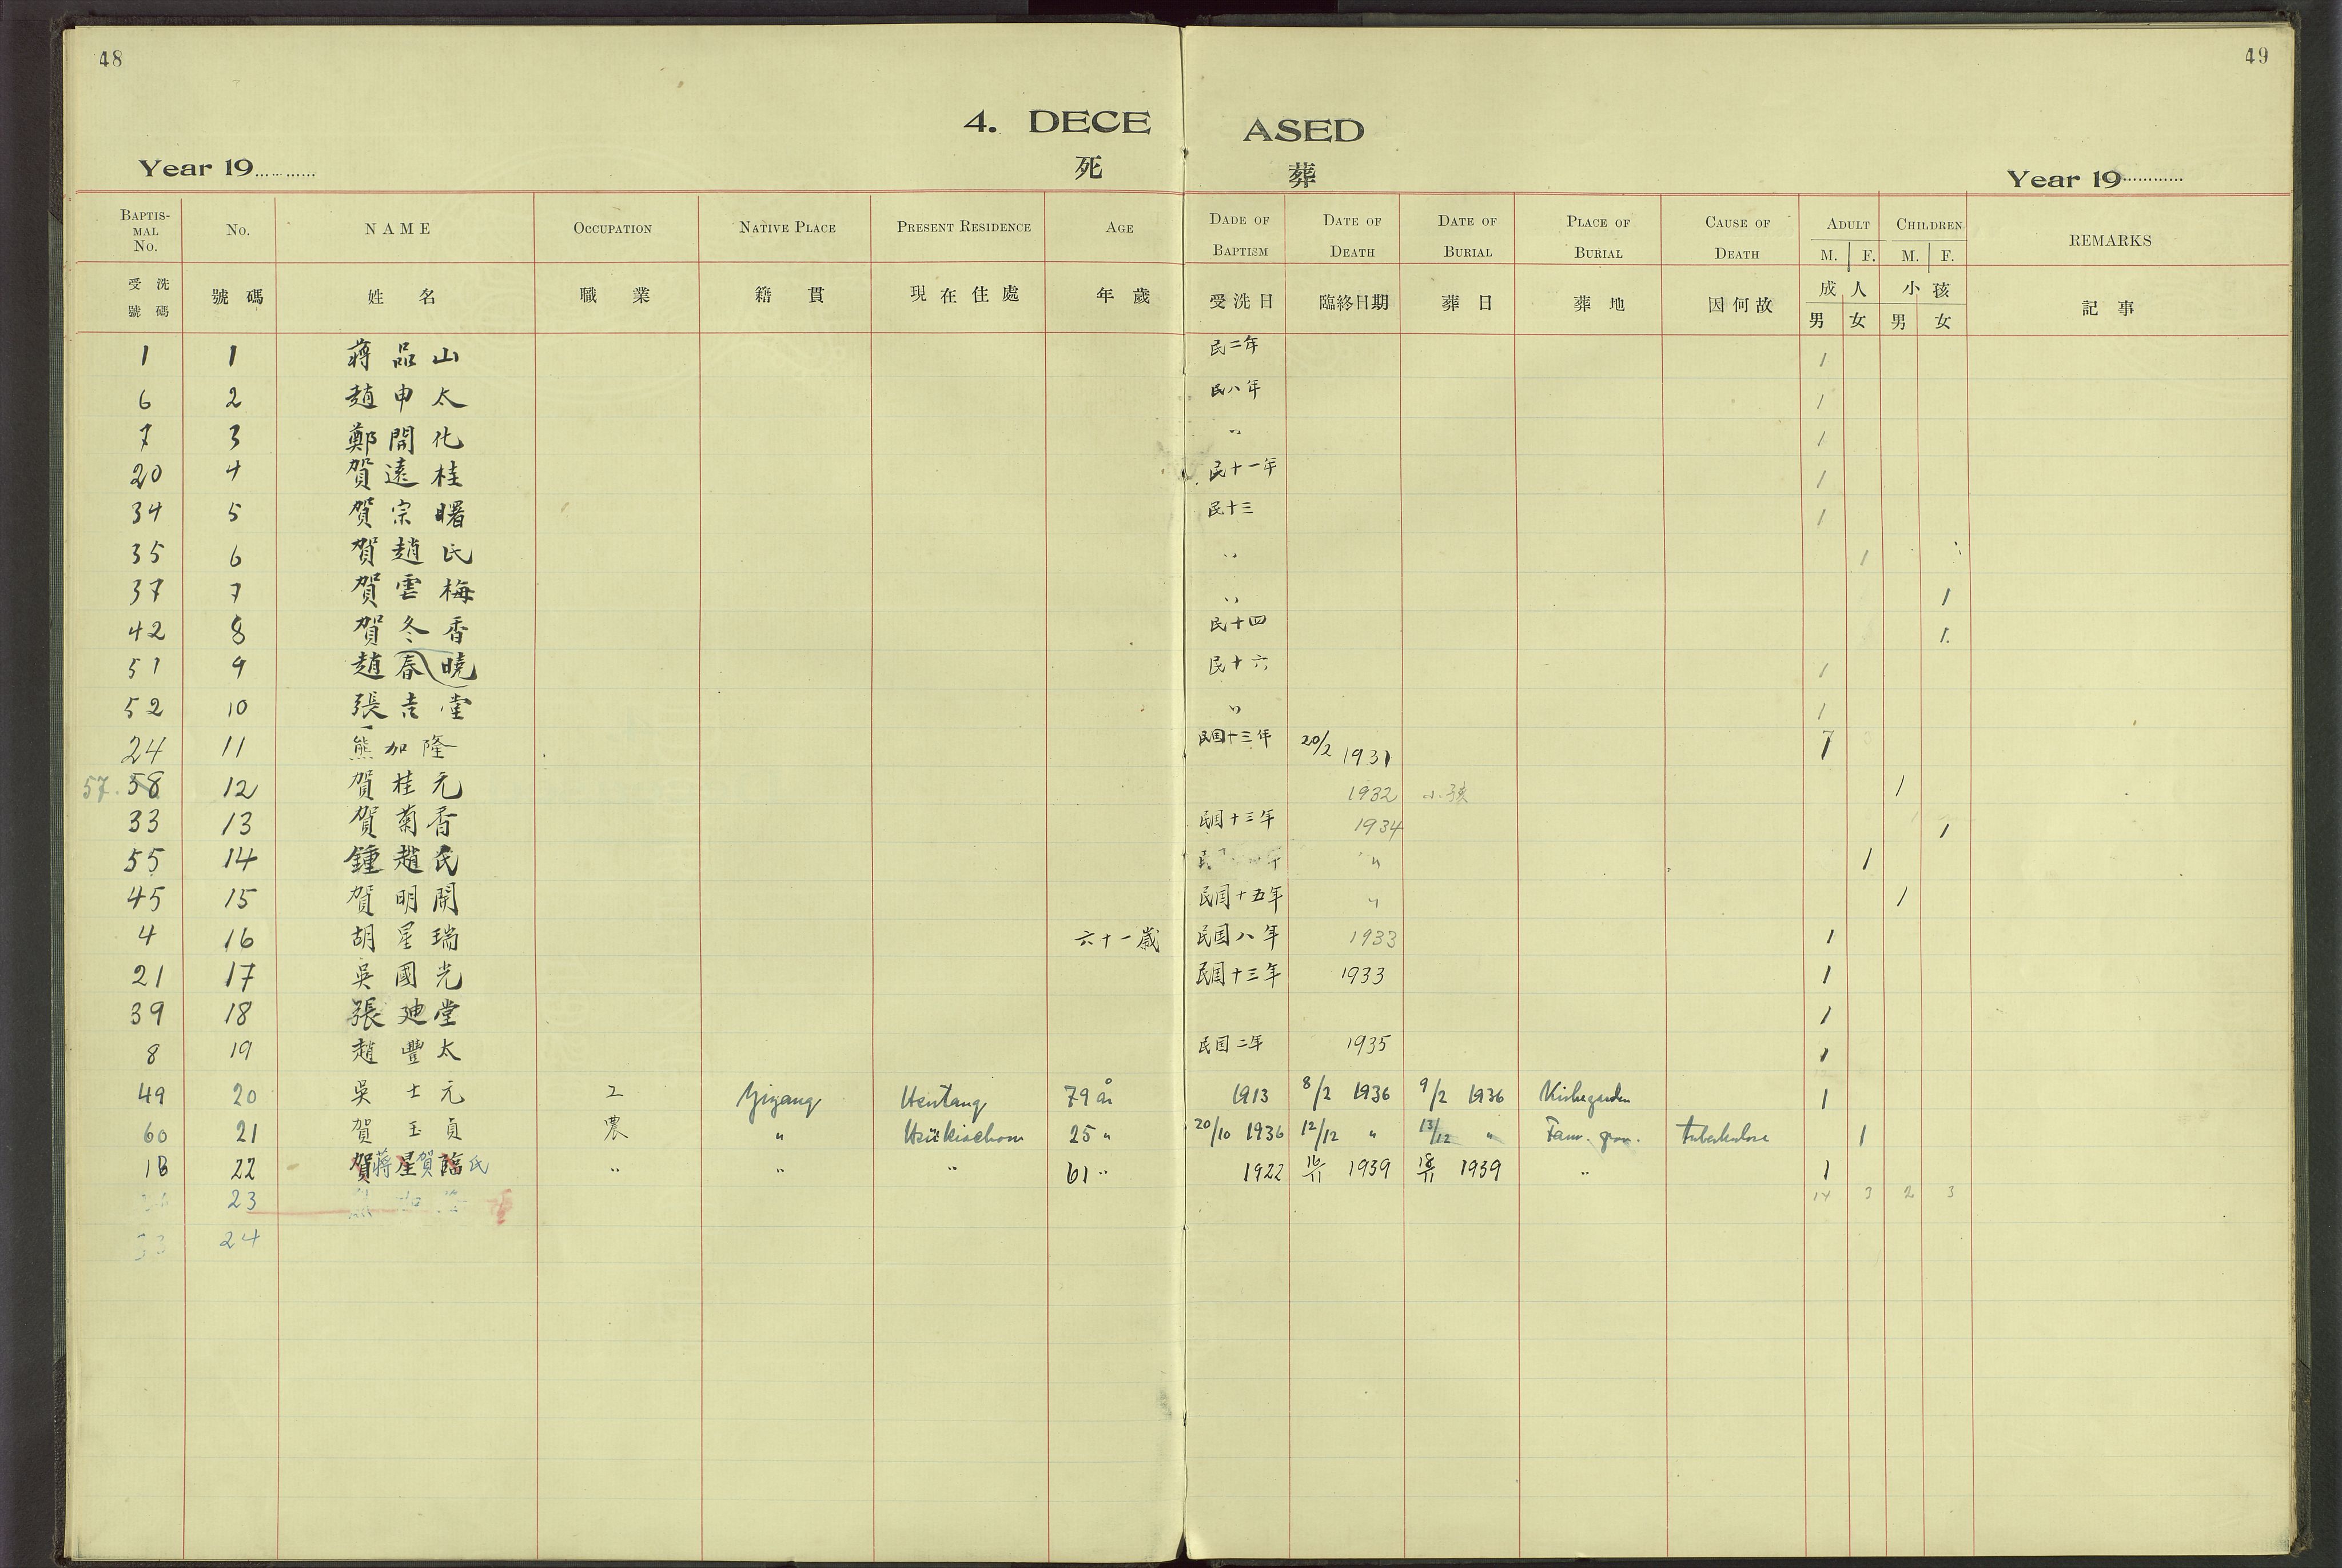 48
49
4. DECEASED
死 葬
Year 19............ Year 19............
BAPTISMAL No. No. NAME OCCUPATION NATIVE PLACE PRESENT RESIDENCE AGE DADE OF BAPTISM DATE OF DEATH DATE OF BURIAL PLACE OF BURIAL CAUSE OF DEATH ADULT M. F. CHILDREN M. F. REMARKS
受洗號碼 號碼 姓名 職業 籍貫 現在住處 年歲 受洗日 臨終日期 葬日 葬地 因何故 成人 男 女 小孩 男 女 記事
1 1 蔣品山 民二年 1
6 2 趙申太 民八年 1
7 3 鄭開化 〃 1
20 4 賀遠桂 民十一年 1
34 5 賀宗曙 民十三 1
35 6 賀趙氏 〃 1
37 7 賀雲梅 〃 1
42 8 賀冬香 民十四 1.
51 9 趙春曉 民十六 1
52 10 張吉堂 〃 1
24 11 熊加隆 民国十三年 20/2 1931 1
57. 58 12 賀桂元 1932 小孩 1
33 13 賀菊香 民国十三年 1934 1
55 14 鍾趙氏 〃 1
45 15 賀明開 民国十五年 〃 1
4 16 胡星瑞 六十一歲 民国八年 1933 1
21 17 吳國光 民国十三年 1933 1
39 18 張廸堂 1
8 19 趙豐太 民国二年 1935 1
49 20 吳士元 工 Yiyang 79 år 1913 8/2 1936 9/2 1936 Kirkegården 1
60 21 賀玉貞 農 〃 25 〃 20/10 1936 12/12 〃 13/12 〃 Fam. grav. tuberkulose 1
18 22 〃 〃 〃 61 〃 1922 16/11 1939 18/11 1939 〃 1
23 14 3 2 3
33 24